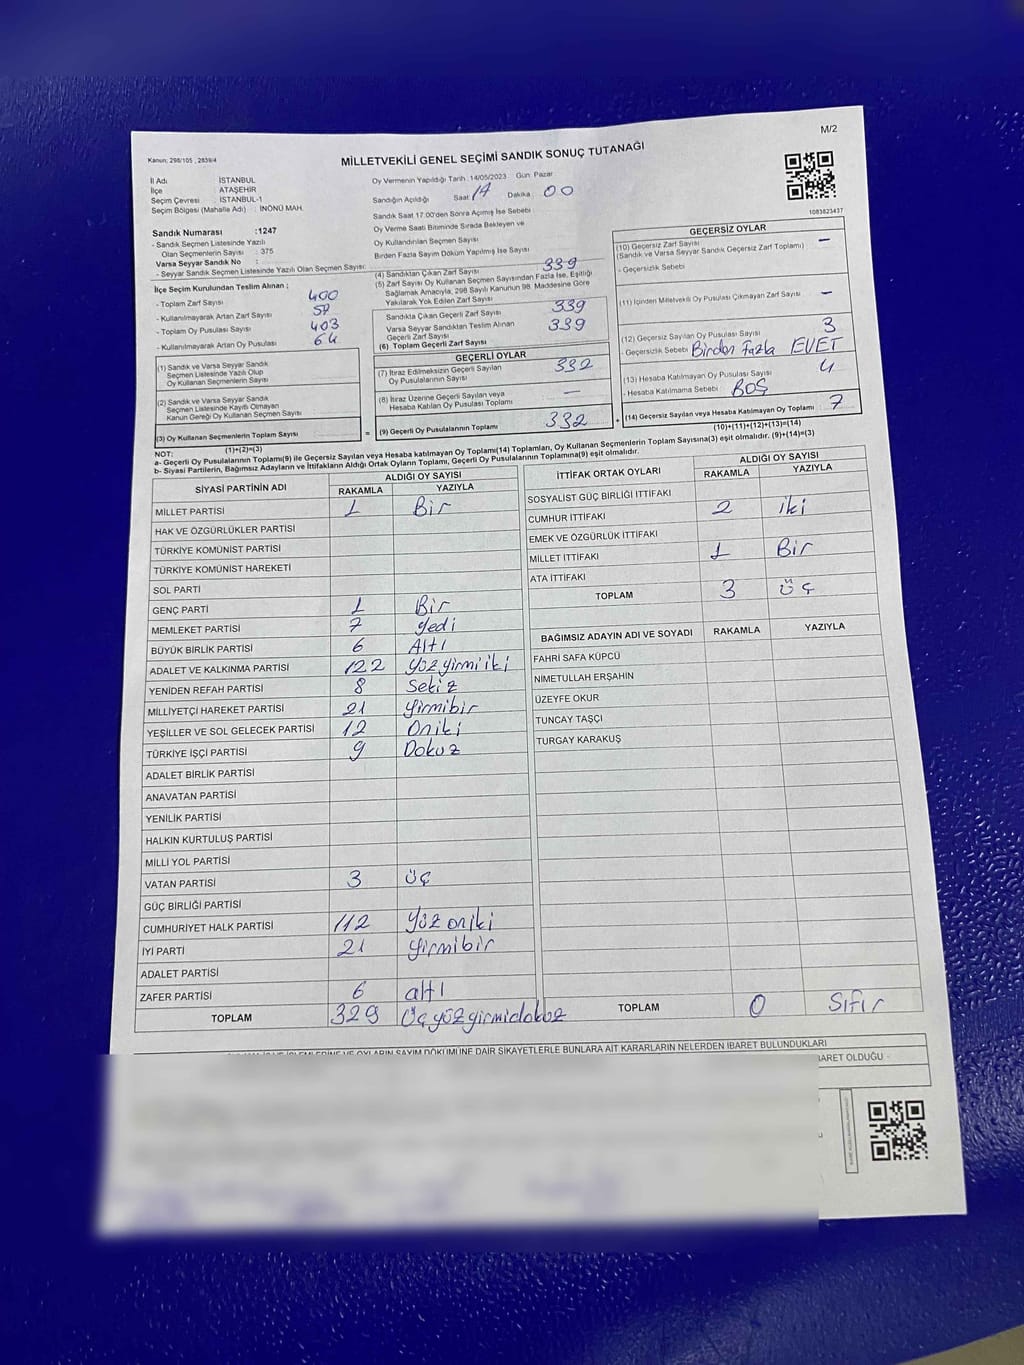 M/2
Kanun; 298/105 , 2839/4
MİLLETVEKİLİ GENEL SEÇİMİ SANDIK SONUÇ TUTANAĞI
İl Adı : İSTANBUL
İlçe : ATAŞEHİR
Seçim Çevresi : İSTANBUL-1
Seçim Bölgesi (Mahalle Adı) : İNÖNÜ MAH.
Sandık Numarası :1247
- Sandık Seçmen Listesinde Yazılı
Olan Seçmenlerin Sayısı : 375
Varsa Seyyar Sandık No :
- Seyyar Sandık Seçmen Listesinde Yazılı Olan Seçmen Sayısı:
Oy Vermenin Yapıldığı Tarih :14/05/2023 Gün: Pazar
Sandığın Açıldığı Saat 14 Dakika 00
Sandık Saat 17.00'den Sonra Açılmış İse Sebebi
Oy Verme Saati Bitiminde Sırada Bekleyen ve
Oy Kullandırılan Seçmen Sayısı
Birden Fazla Sayım Döküm Yapılmış İse Sayısı
1083823437
İlçe Seçim Kurulundan Teslim Alınan ;
- Toplam Zarf Sayısı 400
- Kullanılmayarak Artan Zarf Sayısı
- Toplam Oy Pusulası Sayısı 403
- Kullanılmayarak Artan Oy Pusulası 64
(1) Sandık ve Varsa Seyyar Sandık
Seçmen Listesinde Yazılı Olup
Oy Kullanan Seçmenlerin Sayısı
(2) Sandık ve Varsa Seyyar Sandık
Seçmen Listesinde Kayıtlı Olmayan
Kanun Gereği Oy Kullanan Seçmen Sayısı
(3) Oy Kullanan Seçmenlerin Toplam Sayısı
(1)+(2)=(3)
(4) Sandıktan Çıkan Zarf Sayısı 339
(5) Zarf Sayısı Oy Kullanan Seçmen Sayısından Fazla İse, Eşitliği
Sağlamak Amacıyla, 298 Sayılı Kanunun 98. Maddesine Göre
Yakılarak Yok Edilen Zarf Sayısı
Sandıkta Çıkan Geçerli Zarf Sayısı 339
Varsa Seyyar Sandıktan Teslim Alınan
Geçerli Zarf Sayısı 339
(6) Toplam Geçerli Zarf Sayısı
GEÇERLİ OYLAR
(7) İtiraz Edilmeksizin Geçerli Sayılan
Oy Pusulalarının Sayısı 332
(8) İtiraz Üzerine Geçerli Sayılan veya
Hesaba Katılan Oy Pusulası Toplamı —
= (9) Geçerli Oy Pusulalarının Toplamı 332 +
GEÇERSİZ OYLAR
(10) Geçersiz Zarf Sayısı —
(Sandık ve Varsa Seyyar Sandık Geçersiz Zarf Toplamı)
- Geçersizlik Sebebi
(11) İçinden Milletvekili Oy Pusulası Çıkmayan Zarf Sayısı —
(12) Geçersiz Sayılan Oy Pusulası Sayısı 3
- Geçersizlik Sebebi Birden Fazla EVET
(13) Hesaba Katılmayan Oy Pusulası Sayısı 4
- Hesaba Katılmama Sebebi BOŞ
(14) Geçersiz Sayılan veya Hesaba Katılmayan Oy Toplamı 7
(10)+(11)+(12)+(13)=(14)
NOT:
a- Geçerli Oy Pusulalarının Toplamı(9) ile Geçersiz Sayılan veya Hesaba Katılmayan Oy Toplamı(14) Toplamları, Oy Kullanan Seçmenlerin Toplam Sayısına(3) eşit olmalıdır. (9)+(14)=(3)
b- Siyasi Partilerin, Bağımsız Adayların ve İttifakların Aldığı Ortak Oyların Toplamı, Geçerli Oy Pusulalarının Toplamına(9) eşit olmalıdır.
SİYASİ PARTİNİN ADI ALDIĞI OY SAYISI
RAKAMLA YAZIYLA
MİLLET PARTİSİ 1 Bir
HAK VE ÖZGÜRLÜKLER PARTİSİ
TÜRKİYE KOMÜNİST PARTİSİ
TÜRKİYE KOMÜNİST HAREKETİ
SOL PARTİ
GENÇ PARTİ 1 Bir
MEMLEKET PARTİSİ 7 Yedi
BÜYÜK BİRLİK PARTİSİ 6 Altı
ADALET VE KALKINMA PARTİSİ 122 Yüzyirmiiki
YENİDEN REFAH PARTİSİ 8 Sekiz
MİLLİYETÇİ HAREKET PARTİSİ 21 Yirmibir
YEŞİLLER VE SOL GELECEK PARTİSİ 12 Oniki
TÜRKİYE İŞÇİ PARTİSİ 9 Dokuz
ADALET BİRLİK PARTİSİ
ANAVATAN PARTİSİ
YENİLİK PARTİSİ
HALKIN KURTULUŞ PARTİSİ
MİLLİ YOL PARTİSİ
VATAN PARTİSİ 3 üç
GÜÇ BİRLİĞİ PARTİSİ
CUMHURİYET HALK PARTİSİ 112 Yüzoniki
İYİ PARTİ 21 Yirmibir
ADALET PARTİSİ
ZAFER PARTİSİ 6 altı
TOPLAM 329 Üçyüzyirmidokuz
İTTİFAK ORTAK OYLARI ALDIĞI OY SAYISI
RAKAMLA YAZIYLA
SOSYALİST GÜÇ BİRLİĞİ İTTİFAKI
CUMHUR İTTİFAKI 2 iki
EMEK VE ÖZGÜRLÜK İTTİFAKI
MİLLET İTTİFAKI 1 Bir
ATA İTTİFAKI
TOPLAM 3 üç
BAĞIMSIZ ADAYIN ADI VE SOYADI RAKAMLA YAZIYLA
FAHRİ SAFA KÜPCÜ
NİMETULLAH ERŞAHİN
ÜZEYFE OKUR
TUNCAY TAŞÇI
TURGAY KARAKUŞ
TOPLAM 0 Sıfır
OYLARIN SAYIM DÖKÜMÜNE DAİR ŞİKAYETLERLE BUNLARA AİT KARARLARIN NELERDEN İBARET BULUNDUKLARI
İBARET OLDUĞU -